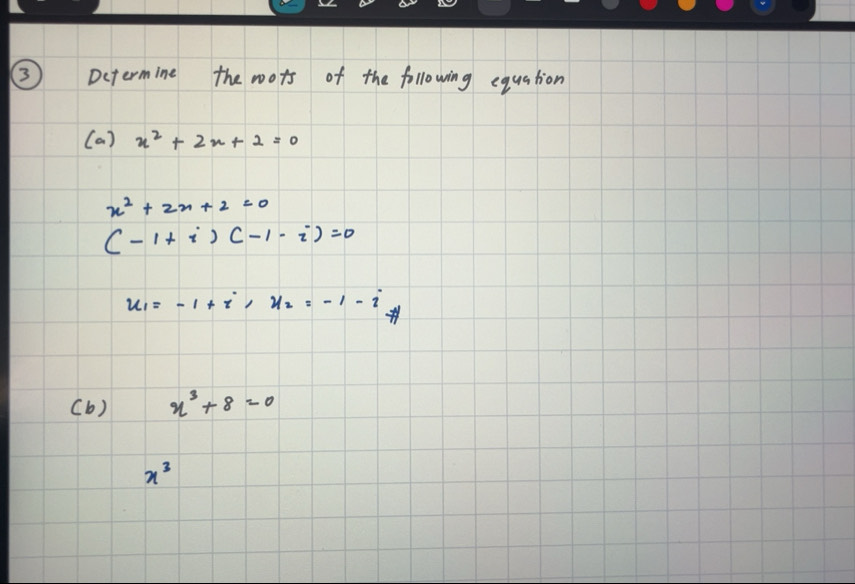 3 Determine the roots of the following equation
(a) x² + 2x + 2 = 0
x² + 2x + 2 = 0
(-1 + i) (-1 - i) = 0
x₁ = -1 + i, x₂ = -1 - i #
(b) x³ + 8 = 0
x³